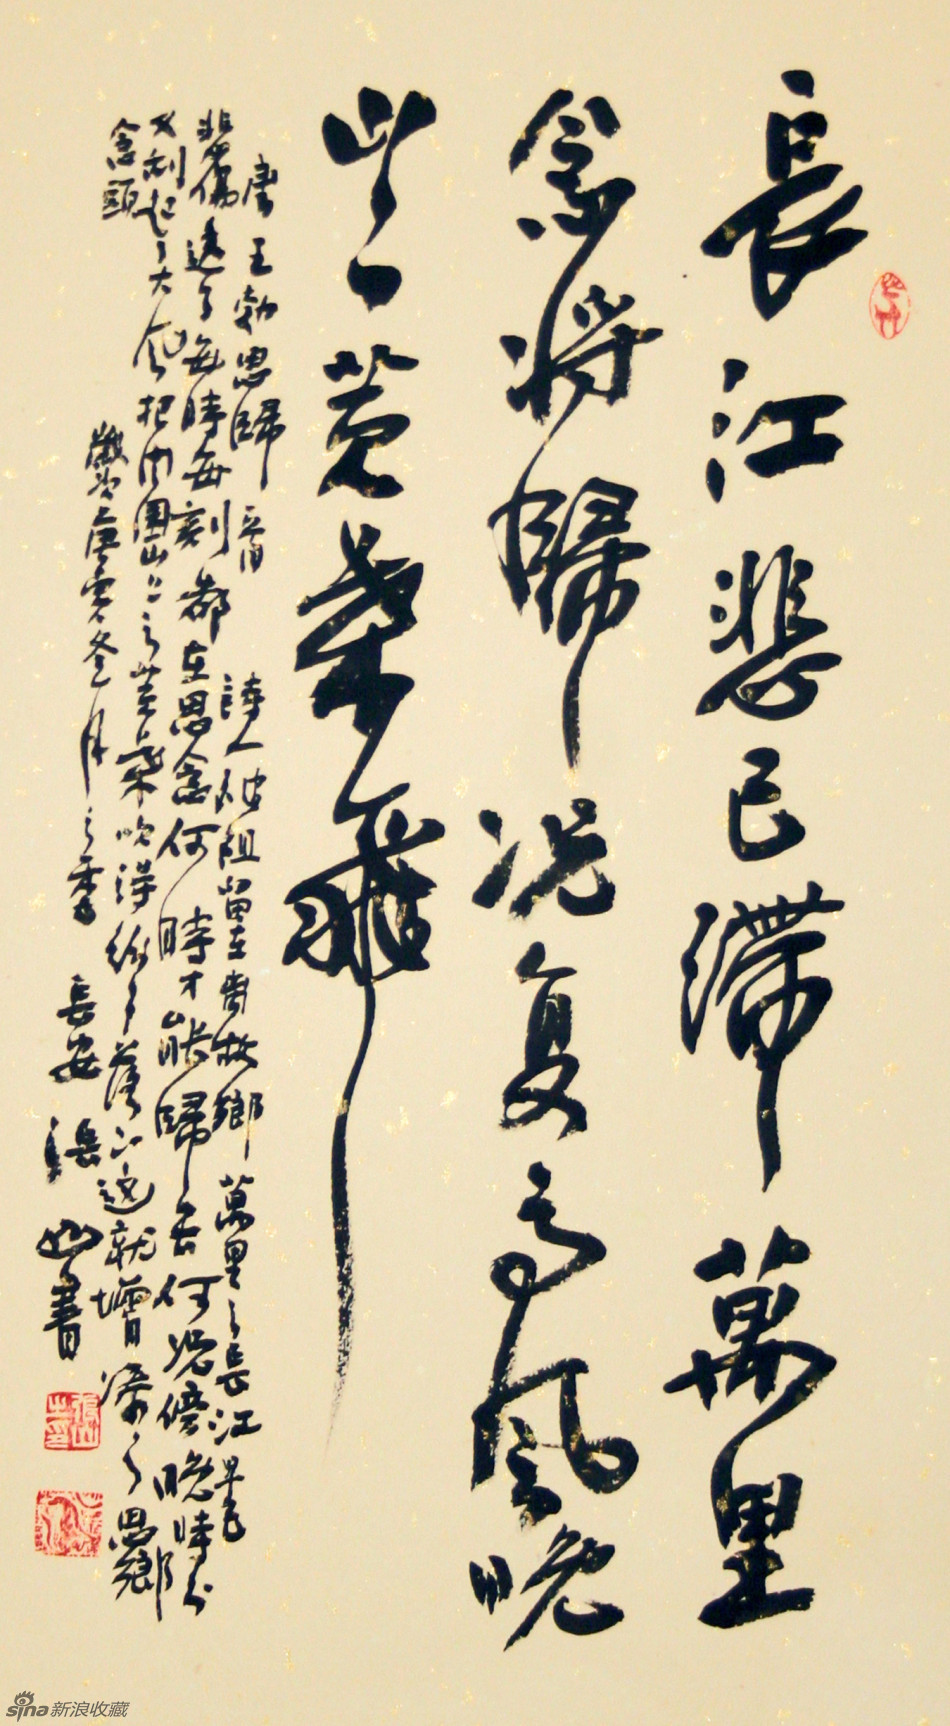 長江悲已滯萬里
念將歸況复高風晚
山山黄葉飛
唐王勃思歸 詩人被阻留在离故鄉萬里之長江早已
悲傷透了每時每刻都在思念何時才能歸去何况傍晚時分
又刮起了大风把周圍山上之黄葉吹得纷纷落下這就增添了思鄉
念頭
歲次庚寅冬月之季 長安張山書
sina新浪收藏